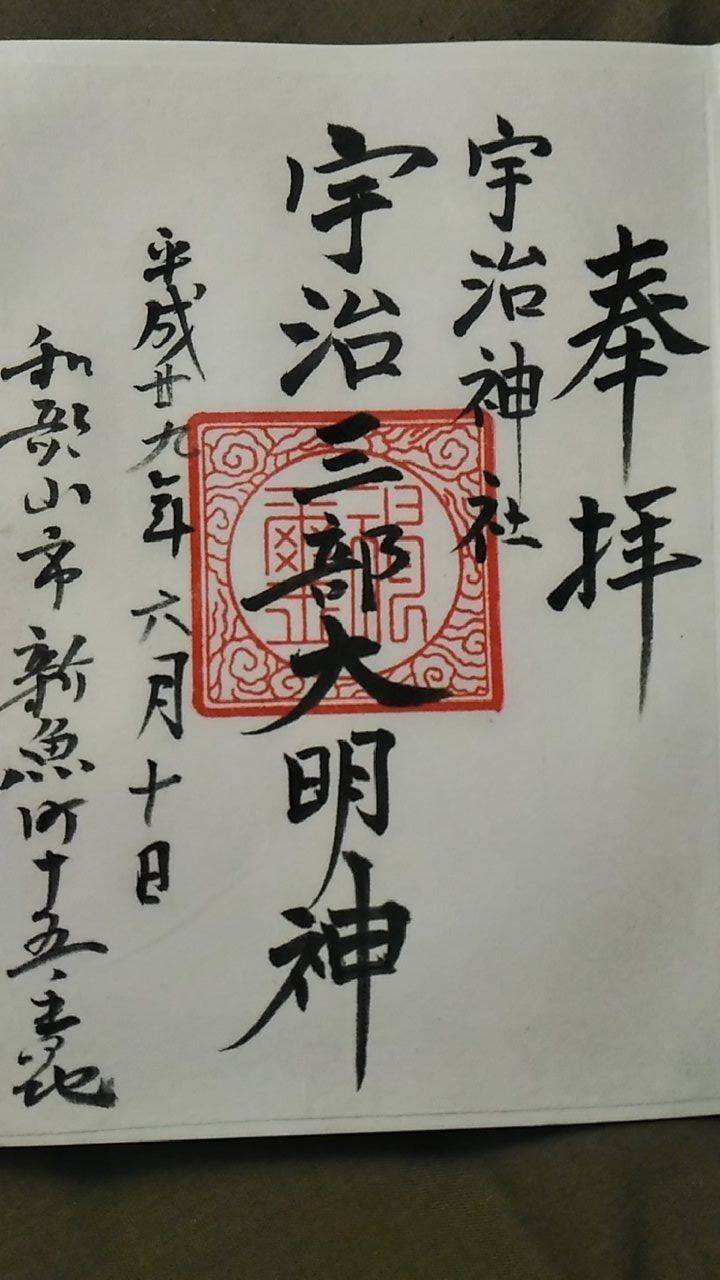 奉拝
宇治神社
宇治三部大明神
平成廿九年六月十日
和歌山市新魚町十五番地